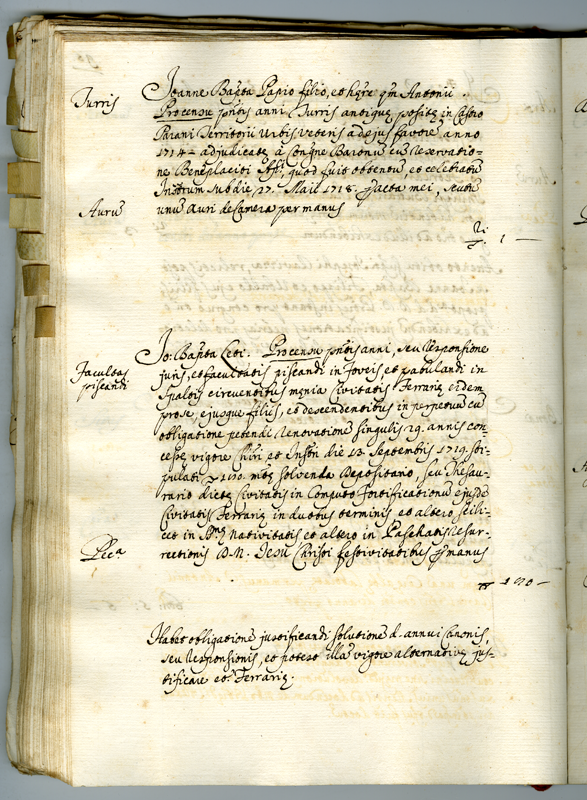 Turris
Joanne Bapta Papio filio, et hęre qm Antonii.
Procensu pntis anni Turris antiquę positę in Castro
Parani Territorii Urbis veteris ad ejus favorē anno
1714 adjudicatę à Congne Baronū cū reservatio-
ne Beneplaciti Aplici, quod fuit obtentū, et celebratū
Instrum sub die 27. Maii 1718. p acta mei, scutū
Aurū
unū auri de Camera per manus
1 —
Facultas
piscandi
Jo: Bapta Ceti. Procensu pntis anni, seu responsione
juris, et facultatis piscandi in foveis et pabulandi in
spaltis circuentibus męnia Civitatis Ferrarię eidem
prose, ejusque filiis, et descendentibus in perpetuū cū
obligatione petendi renovationē singulis 29. annis con-
cessę vigore Chiri et Instri die 13. Septembris 1719. sti-
pulati solvenda Depositario, seu Thesau-
rario dictę Civitatis in Computo Fortificationū ejusdē
Civitatis Ferrarię in duobus terminis et altero scili-
cet in Nativitatis et altero in Paschatis Resur-
rectionis D. N. Jesu Christi festivitatibus p manus
Habet obligationē justificandi solutionē d. annui Canonis,
seu Responsionis, et potest illā vigore alternativę jus-
tificare etc. Ferrarię.